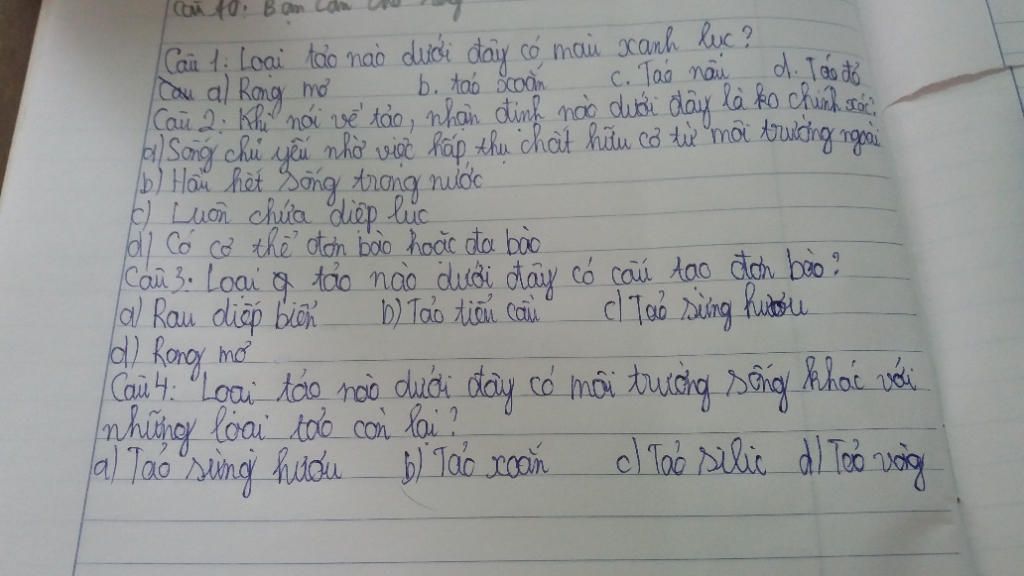 Câu 10: Bạn cần cho rằng
Câu 1: Loại tảo nào dưới đây có màu xanh lục?
Câu a) Rong mơ b. tảo xoắn c. Tảo nâu d. Tảo đỏ
Câu 2: Khi nói về tảo, nhận định nào dưới đây là ko chính xác?
a) Sống chủ yếu nhờ việc hấp thụ chất hữu cơ từ môi trường ngoài
b) Hầu hết sống trong nước
c) Luôn chứa diệp lục
d) Có cơ thể đơn bào hoặc đa bào
Câu 3: Loại tảo nào dưới đây có cấu tạo đơn bào?
a) Rau diếp biển b) Tảo tiểu cầu c) Tảo sừng hươu
d) Rong mơ
Câu 4: Loại tảo nào dưới đây có môi trường sống khác với
những loại tảo còn lại?
a) Tảo sừng hươu b) Tảo xoắn c) Tảo silic d) Tảo vòng